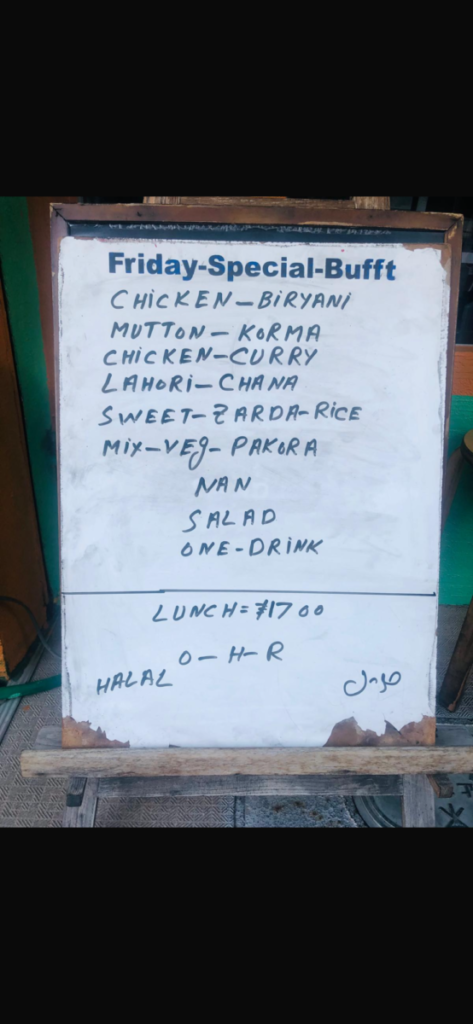 Friday-Special-Bufft
CHICKEN-BIRYANI
MUTTON-KORMA
CHICKEN-CURRY
LAHORI-CHANA
SWEET-ZARDA-RICE
MIX-VEg-PAKORA
NAN
SALAD
ONE-DRINK
LUNCH=¥1700
O-H-R
HALAL